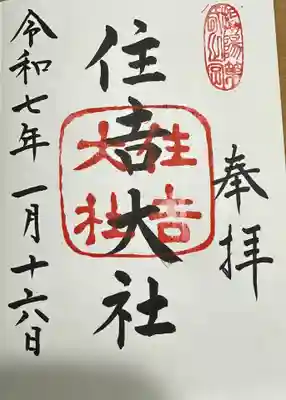 奉拝
住吉大社
住吉
大社
令和七年一月十六日